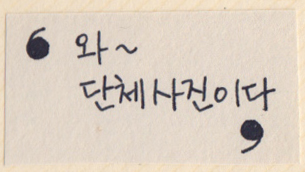 ‘ 와~
단체사진이다 ’